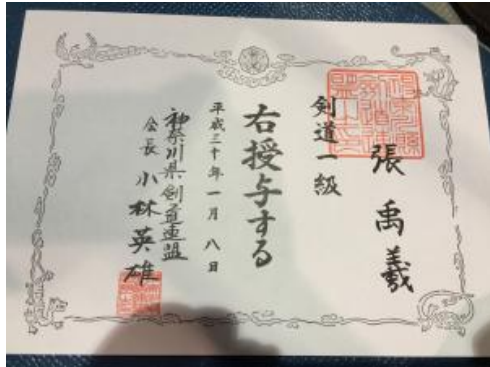 張禹義
剣道一級
右授与する
平成三十年一月八日
神奈川県剣道連盟
会長 小林英雄